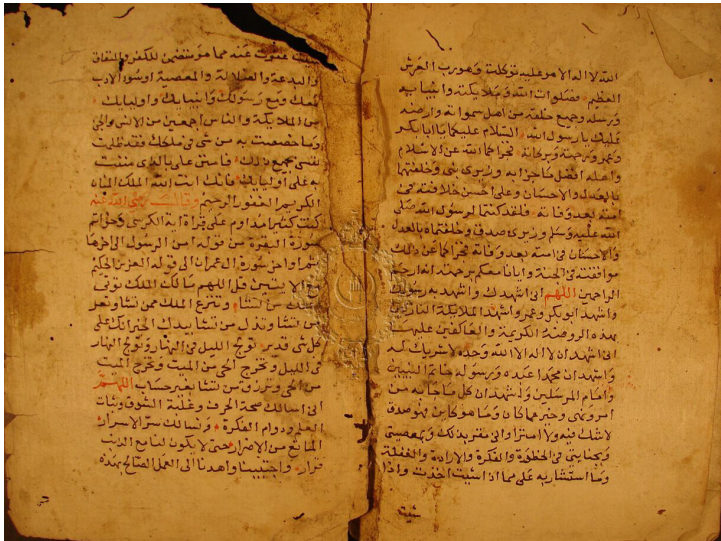 الله لا اله الا هو عليه توكلت وهو رب العرش
العظيم فصلوات الله وملايكته وانبيايه
ورسله وجميع خلقه من اهل سمواته وارضه
عليك يا رسول الله السلام عليكما يا ابا بكر
وعمر ورحمة الله وبركاته فجزاكما الله عن الاسلام
واهله افضل ما جزا به وزيري نبي وخلفتهما
بالعدل والاحسان وعلى احسن خلافته في
امته بعد وفاته فلقد كنتما لرسول الله صلى
الله عليه وسلم وزيري صدق وخلفتماه بالعدل
والاحسان في امته بعد وفاته فجزاكما عن ذلك
موافقته في الجنة وايانا معكم برحمته انه ارحم
الراحمين اللهم اني اشهدك واشهد به رسولك
واشهد ابو بكر وعمر واشهد الملايكة النازلين
بهذه الروضة الكريمة والعاكفين عليها
اني اشهد ان لا اله الا الله وحده لا شريك له
واشهد ان محمدا عبده ورسوله خاتم النبيين
وامام المرسلين واشهد ان كل ما جا به من
امر ونهي وخبر عما كان وما هو كاين فهو صدق
لا شك فيه ولا امترا واني مقر بذلك وبمعصيتي
وبجنايتي في الخطرة والفكرة والارادة والغفلة
وما استشار به على مما اذا شيت اخذت واذا
شيت
شيت عفوت عنه مما هو متضمن للكفر والنفاق
والبدعة والضلالة والمعصية او سو الادب
معك ومع رسولك وانبيايك واوليايك
من الملايكة والناس اجمعين من الانس والجن
وما خصصت به من شي في ملكك فقد ظلمت
نفسي بجميع ذلك فامنن علي بالذي مننت
به على اوليايك فانك انت الله الملك المنان
الكريم الغفور الرحيم وقال رضي الله عنه
كنت كثيرا مداوم على قراة اية الكرسي وخواتم
سورة البقرة من قوله امن الرسول الى اخرها
ثم اواخر سورة ال عمران الى قوله العزيز الحكيم
مع الايتين قل اللهم مالك الملك توتي
الملك من تشا وتنزع الملك ممن تشا وتعز
من تشا وتذل من تشا بيدك الخير انك على
كل شي قدير تولج الليل في النهار وتولج النهار
في الليل وتخرج الحي من الميت وتخرج الميت
من الحي وترزق من تشا بغير حساب اللهم
اني اسالك صحة الحرف وغلبة الشوق وثبات
العلم ودوام الفكرة ونسالك سر الاسرار
المانع من الاصرار حتى لا يكون لنا مع الذنب
قرار واجتبينا واهدنا الى العمل الصالح بهذه